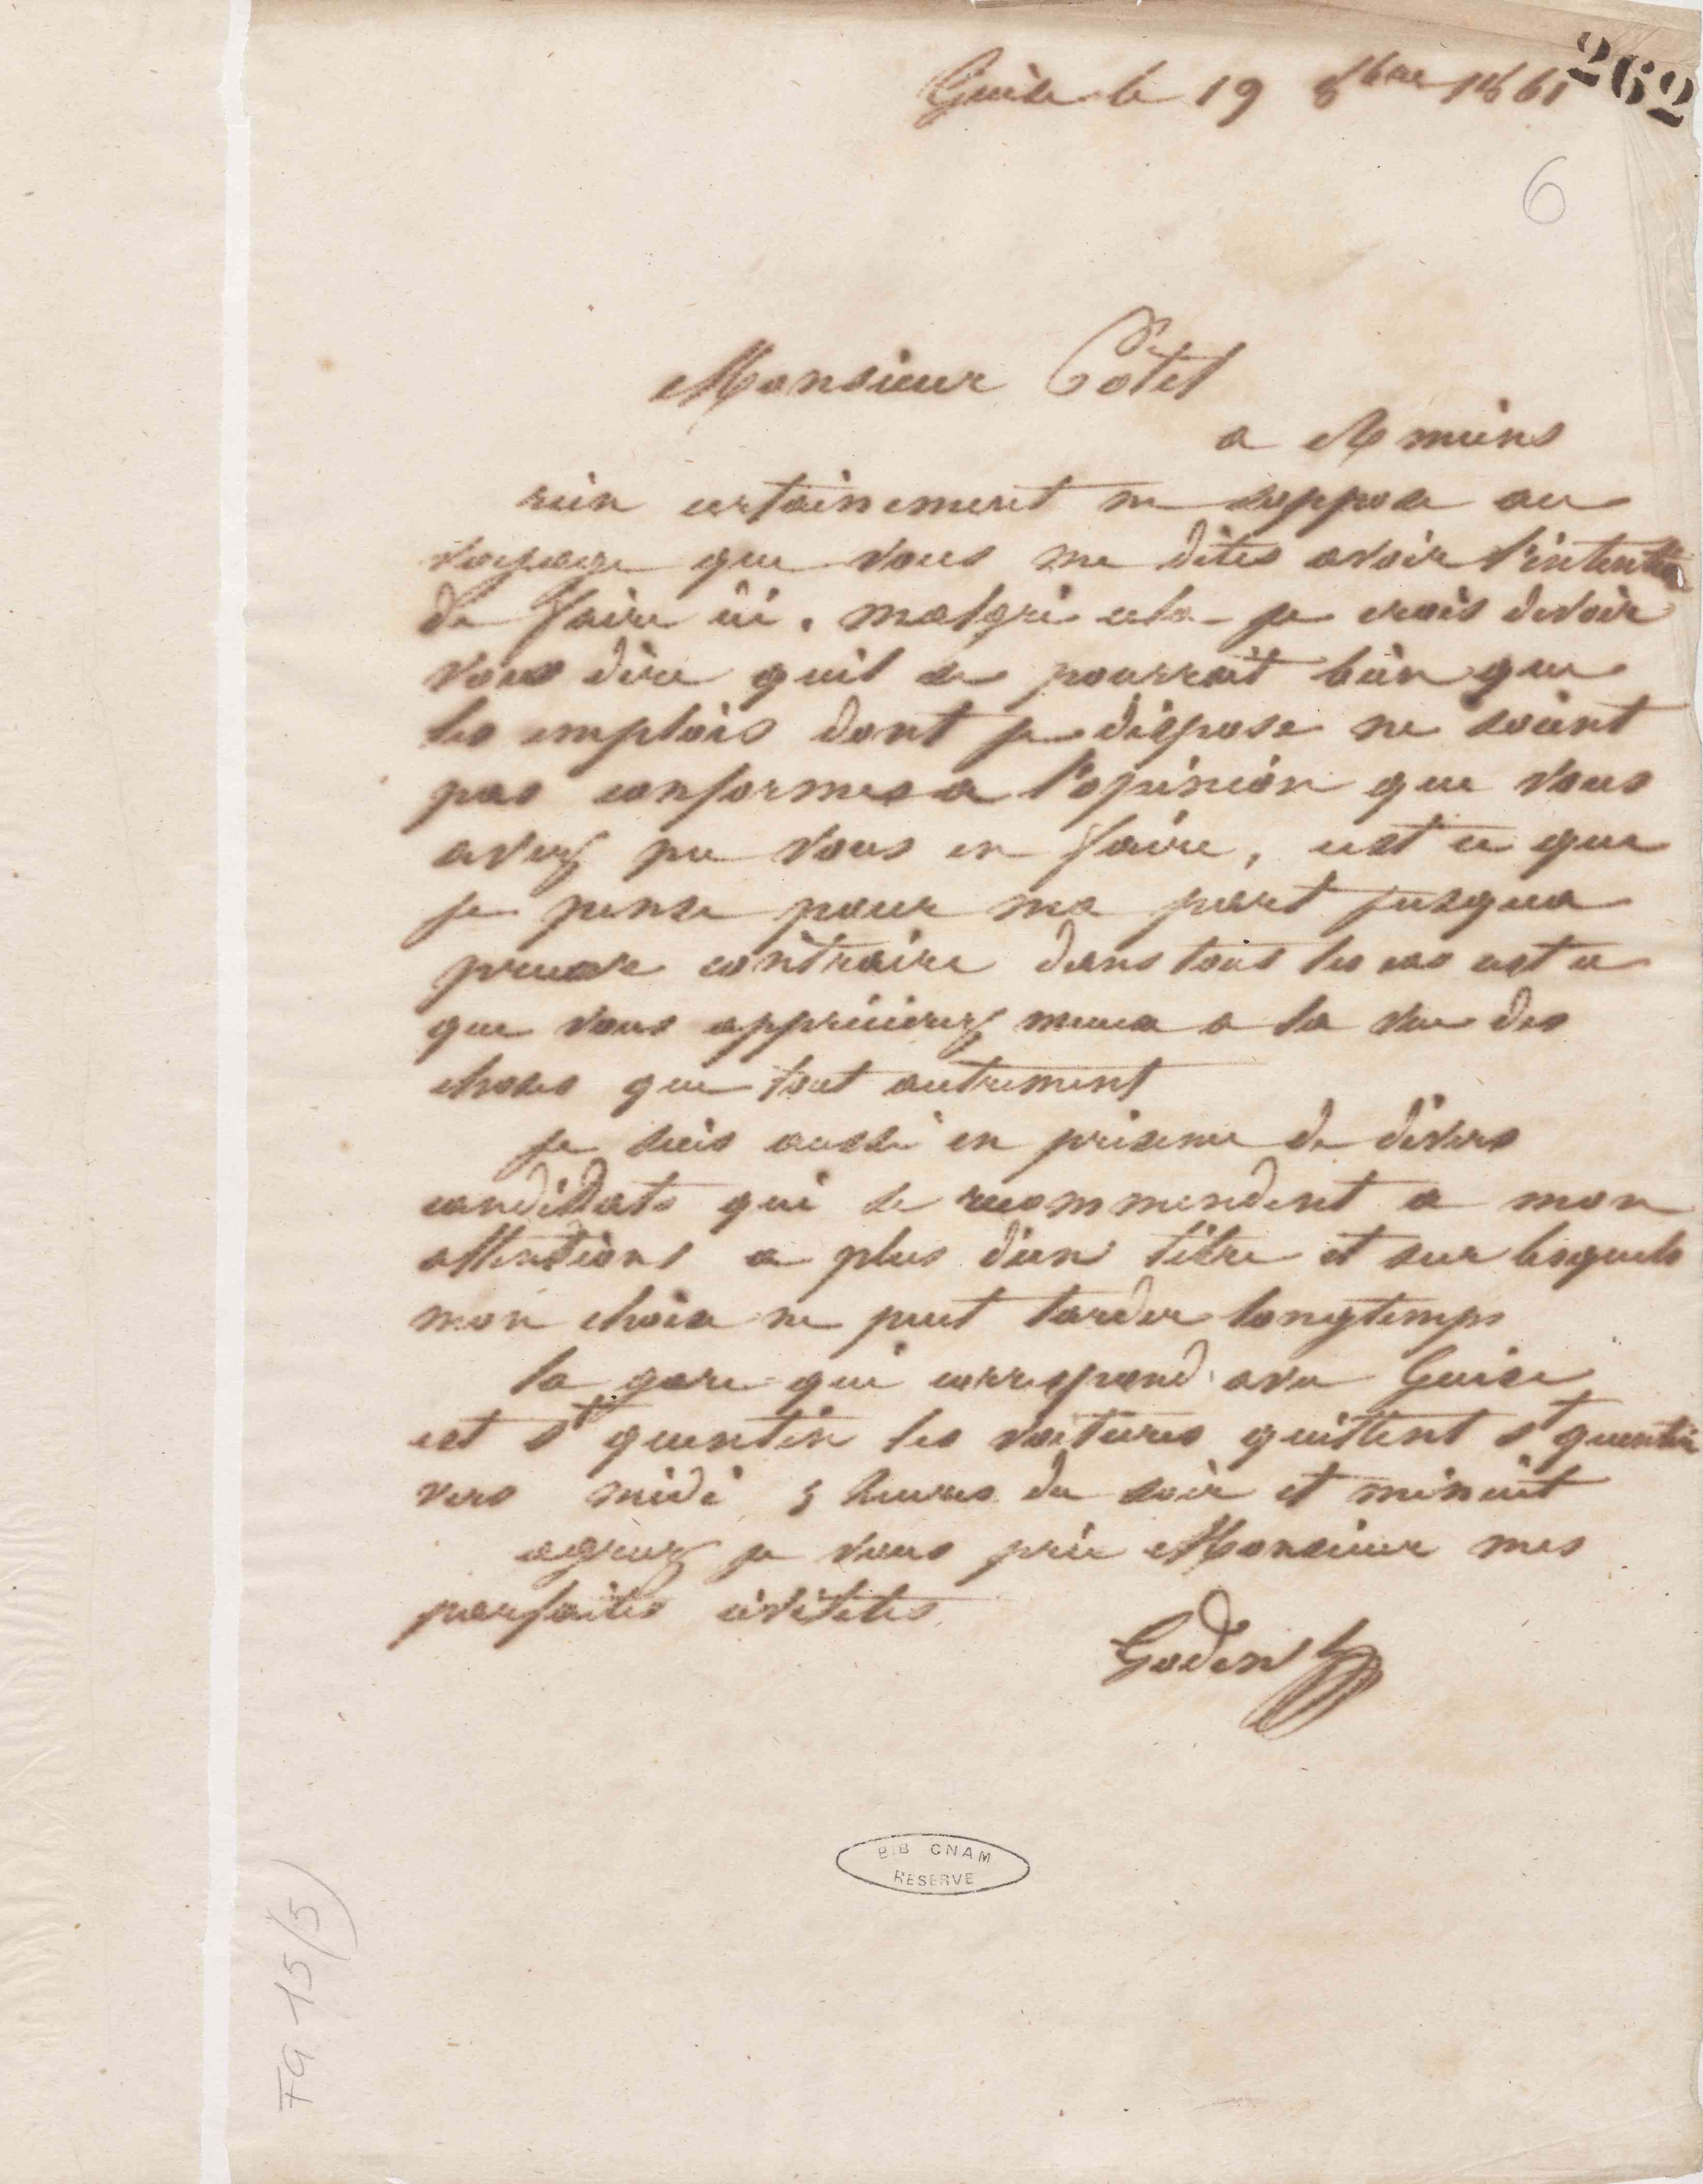 262
Guise le 19 8bre 1861
6
Monsieur Cotel
a Amiens
rien certainement ne soppose au
voyage que vous me dites avoir l'intention
de faire ici. malgré cela je crois devoir
vous dire quil se pourrait bien que
les emplois dont je dispose ne soient
pas conformes a l'opinion que vous
avez pu vous en faire, cest ce que
je pense pour ma part jusqua
preuve contraire dans tous les cas cest ce
que vous apprécierez mieux a la vue des
choses que tout autrement
je suis aussi en présence de divers
candidats qui se recommendent a mon
attentions a plus d'un titre et sur lesquels
mon choix ne peut tarder longtemps
la gare qui correspond avec Guise
est St quentin les voitures quittent St quentin
vers midi 5 heures du soir et minuit
agréez je vous prie Monsieur mes
parfaites civilités
Godin
BIB CNAM
RESERVE
FG 15 (5)